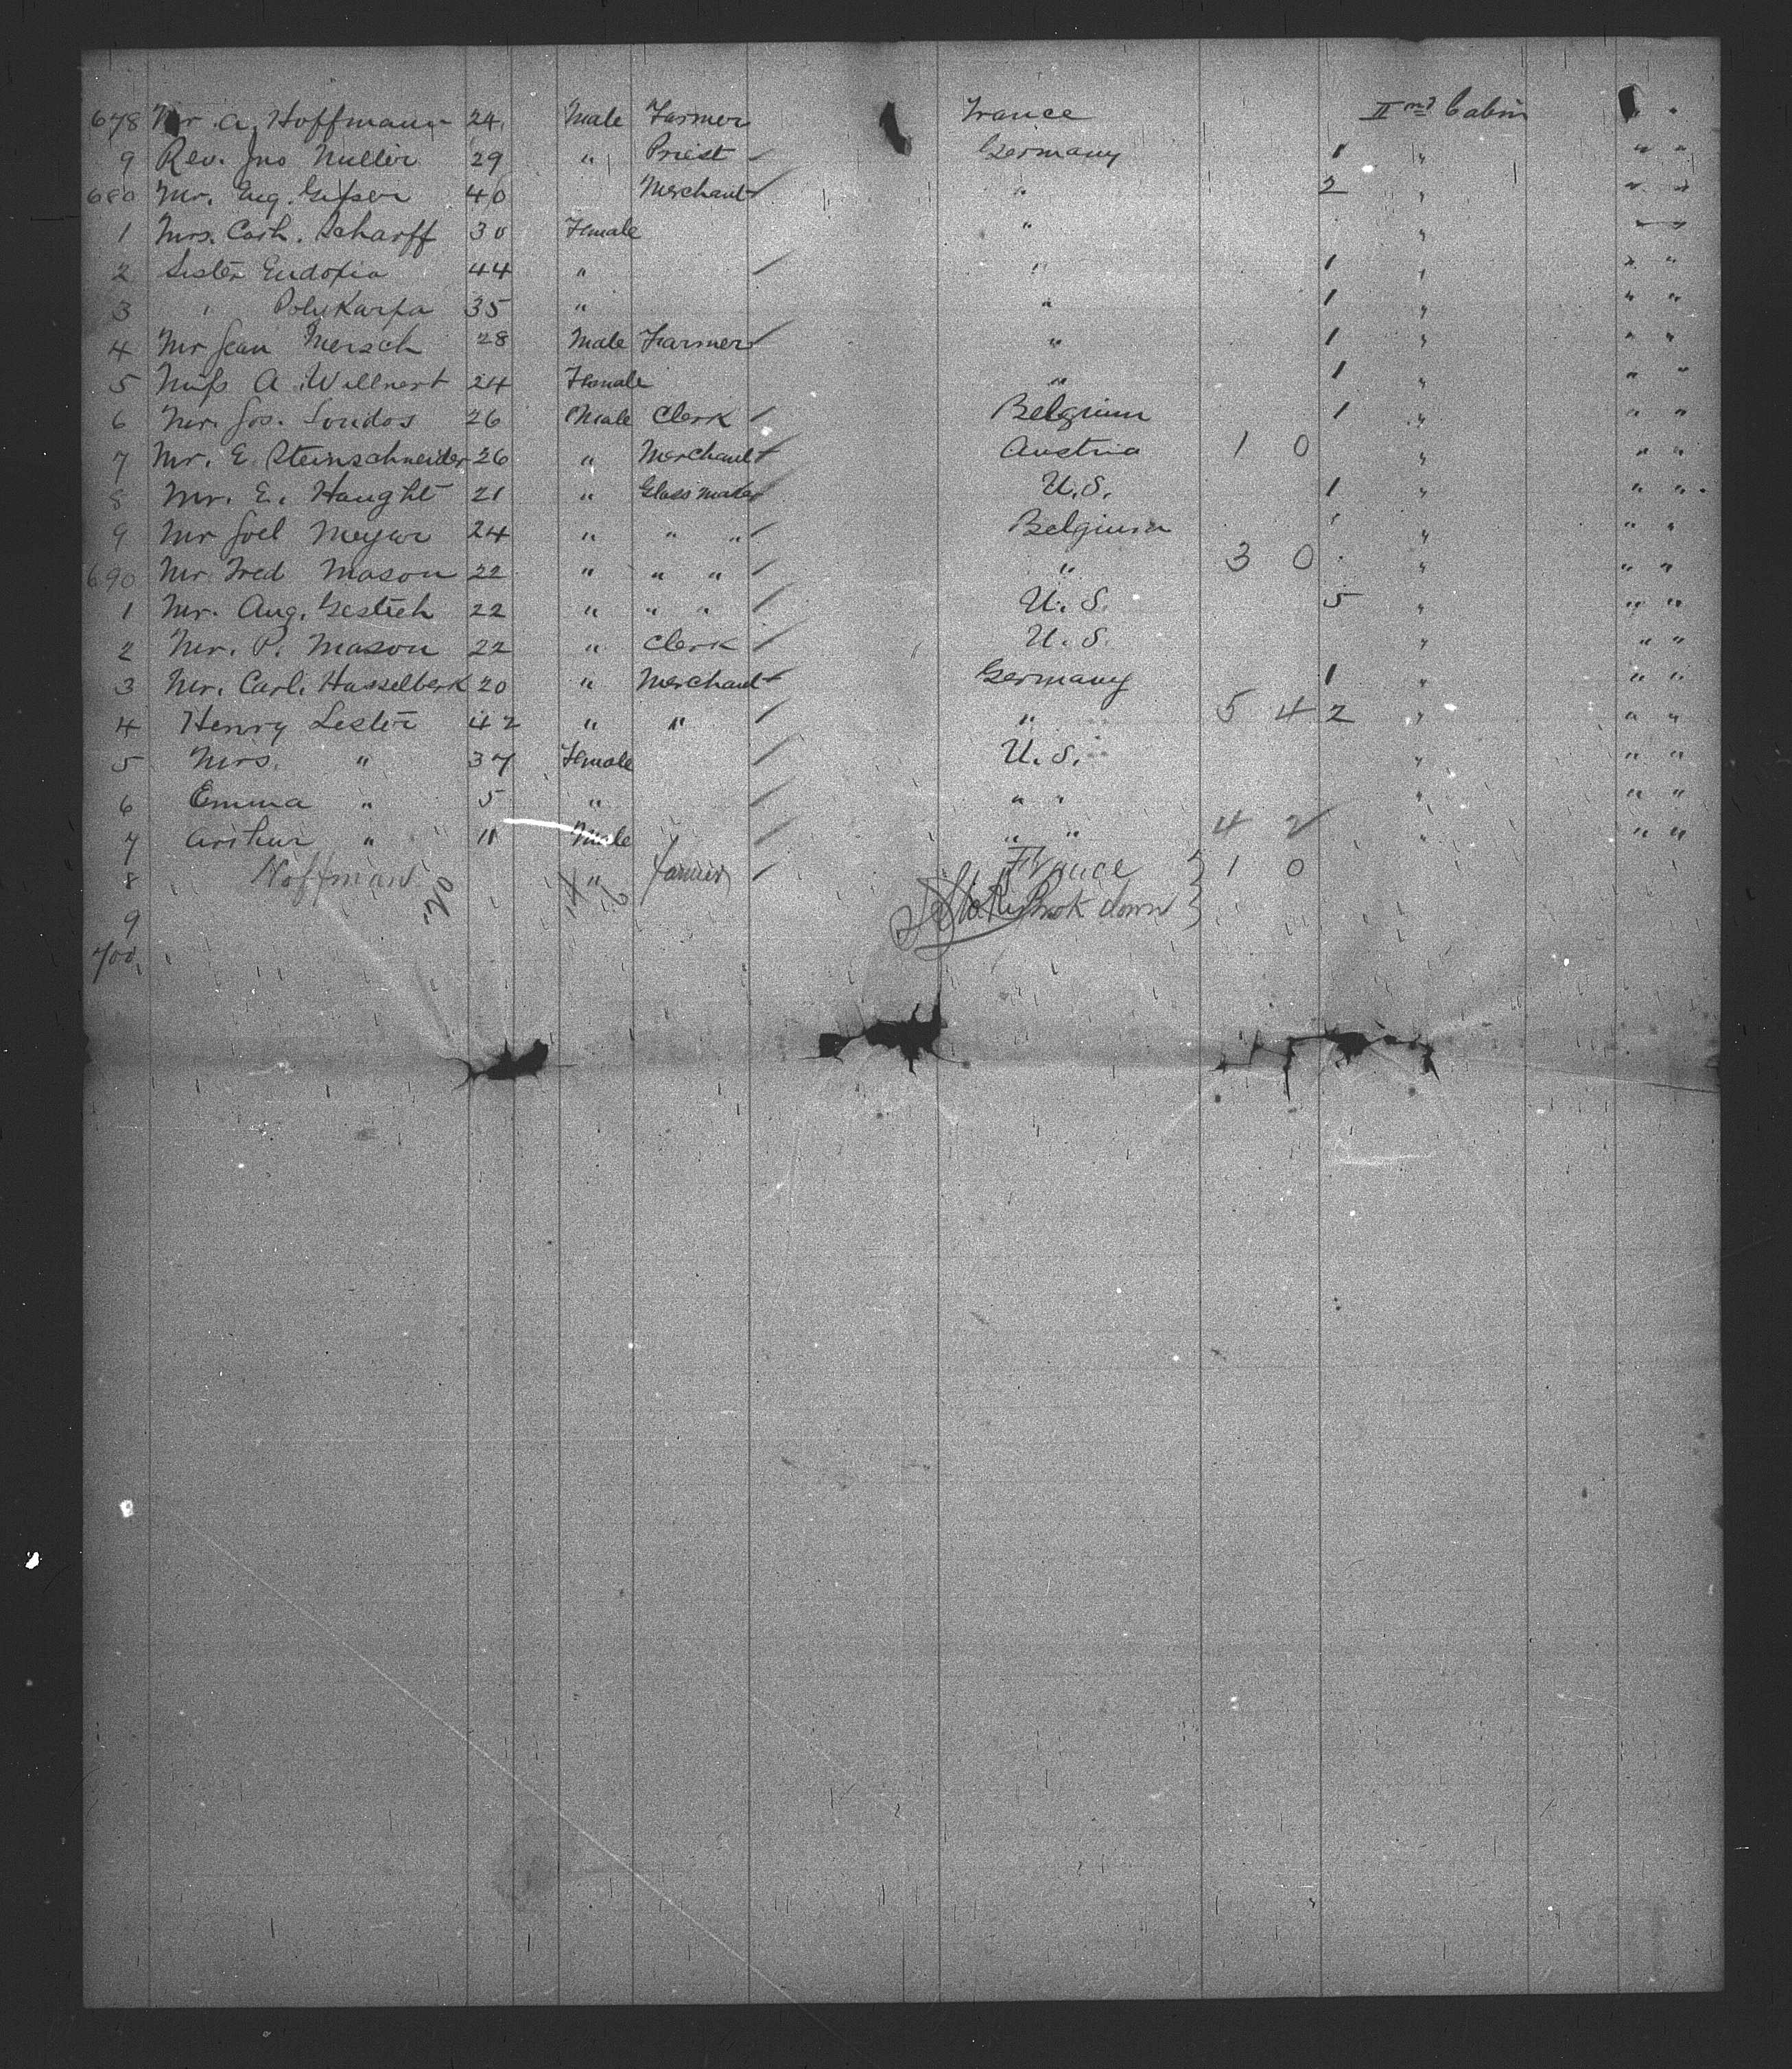 678 Mr. A. Hoffmann 24 Male Farmer France IInd Cabin " "
9 Rev. Jno Muller 29 " Priest Germany 1 " " "
680 Mr. Eug. 40 Merchant " 2 " " "
1 Mrs. Cath. Scharff 30 Female " " "
2 Sister Eudoxia 44 " " 1 " " "
3 " Polykarpa 35 " " 1 " " "
4 Mr Jean Mersch 28 Male Farmer " 1 " " "
5 Miss A. Willnert 24 Female " 1 " " "
6 Mr. Jos. Soudos 26 Male Clerk Belgium 1 " " "
7 Mr. E. Steinschneider 26 " Merchant Austria 1 0 " " "
8 Mr. E. Haught 21 " Glass maker U.S. 1 " " "
9 Mr Joel Meyer 24 " " " Belgium " " " "
690 Mr. Fred Mason 22 " " " " 3 0 " " "
1 Mr. Aug. 22 " " " U.S. 5 " " "
2 Mr. P. Mason 22 " Clerk U.S. " " "
3 Mr. Carl. Hasselberk 20 " Merchant Germany 1 " " "
4 Henry Lester 42 " " " 5 4 2 " " "
5 Mrs. " 37 Female U.S. " " "
6 Emma " 5 " " " " " "
7 Arthur " 11 Male " " 4 2 " " "
8 Hoffman 20 " Farmer France 1 0
9 down
700